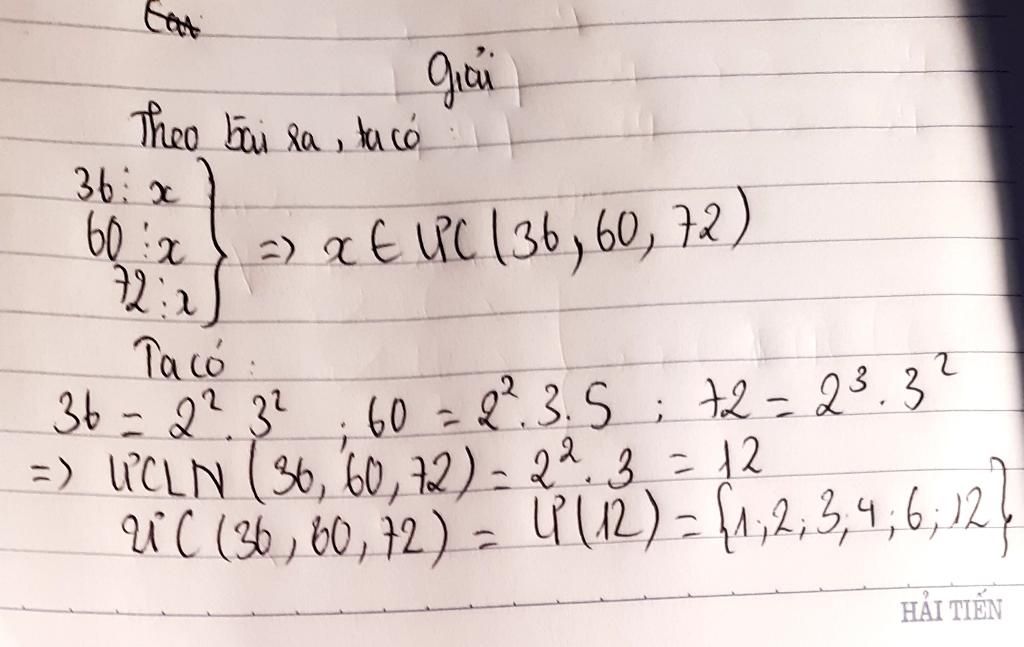 Giải
Theo bài ra, ta có:
36 ⋮ x
60 ⋮ x
72 ⋮ x
} => x ∈ ƯC (36, 60, 72)
Ta có:
36 = 2². 3² ; 60 = 2². 3. 5 ; 72 = 2³. 3²
=> ƯCLN (36, 60, 72) = 2². 3 = 12
ƯC (36, 60, 72) = Ư(12) = {1; 2; 3; 4; 6; 12}
HẢI TIẾN